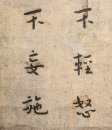 不輕怒
不妄施